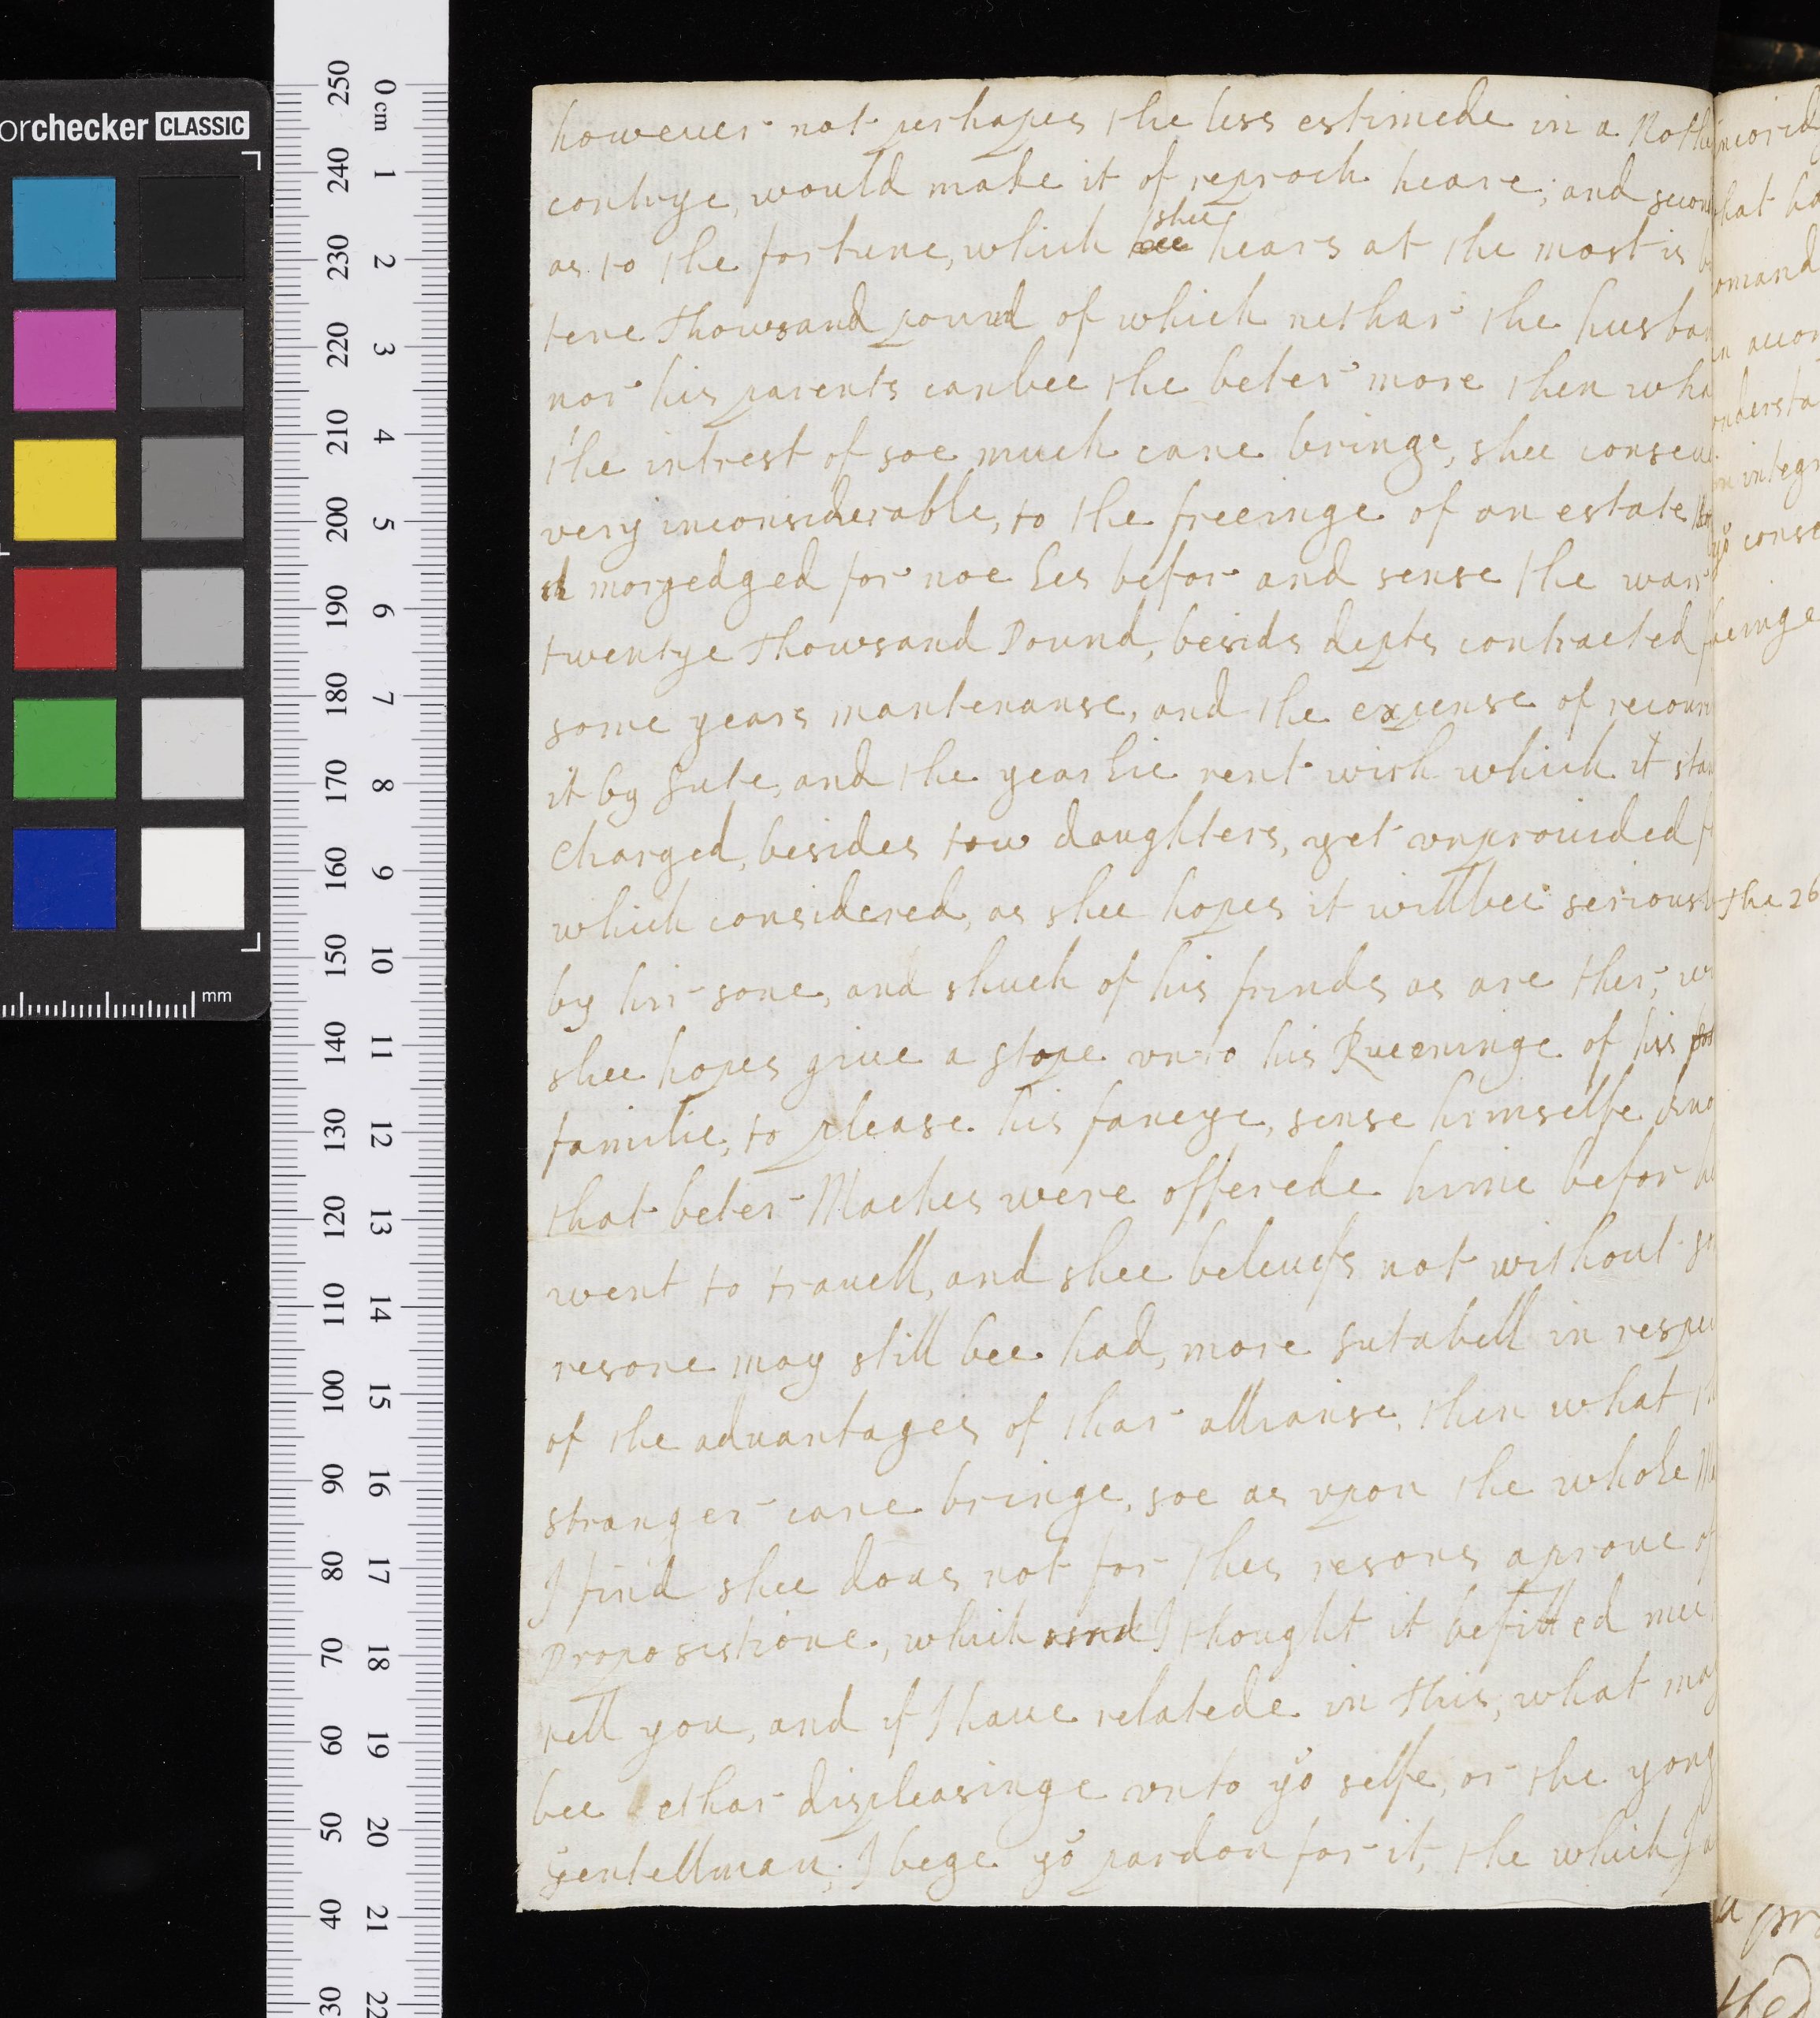 orchecker CLASSIC
mm
0 cm 1 2 3 4 5 6 7 8 9 10 11 12 13 14 15 16 17 18 19 20 21 22
250 240 230 220 210 200 190 180 170 160 150 140 130 120 110 100 90 80 70 60 50 40 30
howeuer not perhapes the less estimede in a Noth
contrye, would make it of reproch heare; and secon
as to the fortune, which shee hears at the most is
tene thowsand pound of which nethar the husban
nor his parents canbee the beter more then wha
the intrest of soe much cane bringe, shee conseu
very inconsiderable, to the freeinge of an estate
morgedged for noe les befor and sense the warr
twentye thowsand Pound, besids depts contracted f
some years mantenanse, and the expense of recour
it by sute, and the yearlie rent with which it stan
charged, besides tow daughters, yet vnprouided f
which considered, as shee hopes it willbee seriousl
by hir sone, and shuch of his frinds as are ther, w
shee hopes giue a stope vnto his Rueeninge of his
familie, to please his fancye, sense himselfe kno
that beter Maches were offerede hime befor he
went to trauell, and shee beleuefs not without gr
resone may still bee had, more sutabell in respec
of the aduantages of thar allianse, then what th
stranger cane bringe, soe as vpon the whole Ma
I find shee dous not for thes resons aproue of
Proposistione, which I thought it befitted mee
tell you, and if I haue relatede in this, what may
bee ethar displeasinge vnto yo selfe, or the yong
gentellman; I bege yo pardon for it, the which I a
that ha
omand
in accor
ondersta
integr
yo conse
beinge
the 26